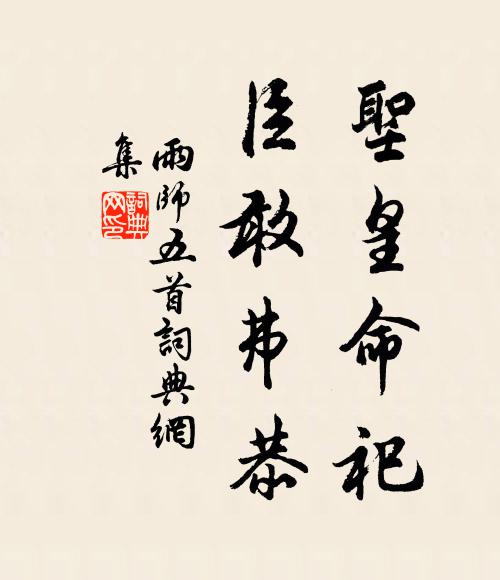 聖皇命祀
臣敢弗恭
雨師五首詞典網
集
詞典网印